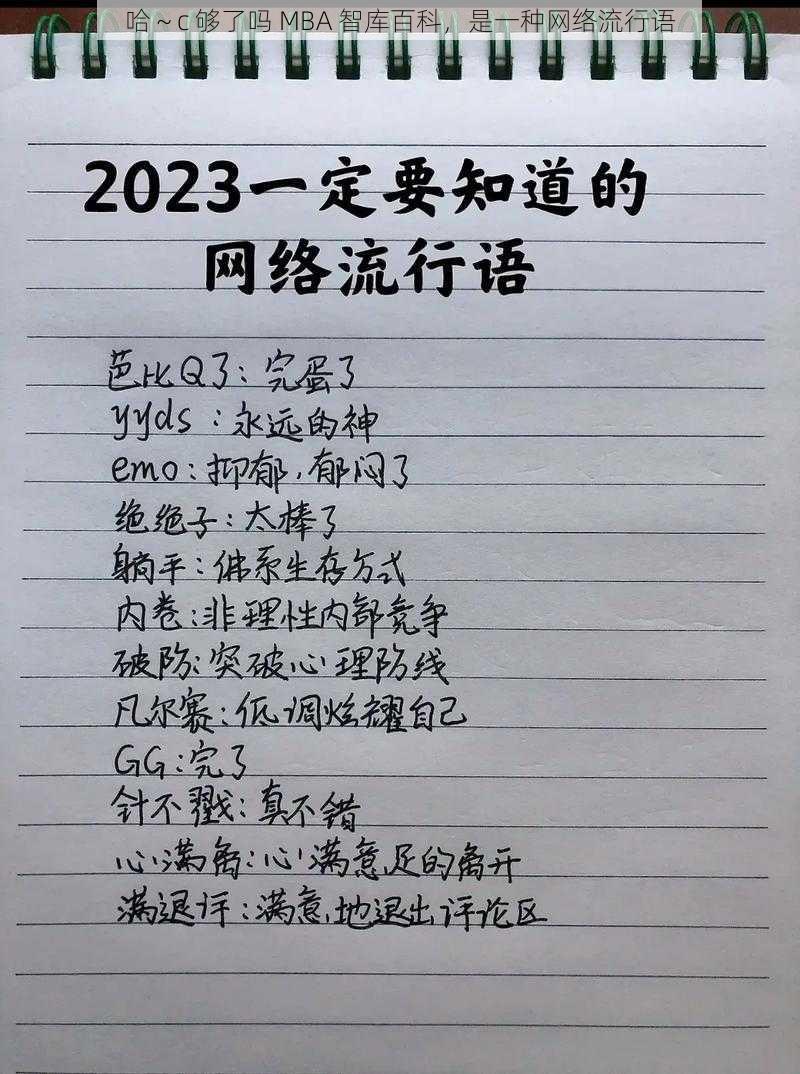 哈～c 够了吗 MBA 智库百科，是一种网络流行语
2023一定要知道的
网络流行语
芭比Q了：完蛋了
yyds：永远的神
emo：抑郁，郁闷了
绝绝子：太棒了
躺平：佛系生存方式
内卷：非理性内部竞争
破防：突破心理防线
凡尔赛：低调炫耀自己
GG：完了
针不戳：真不错
心满离：心满意足的离开
满退评：满意地退出评论区